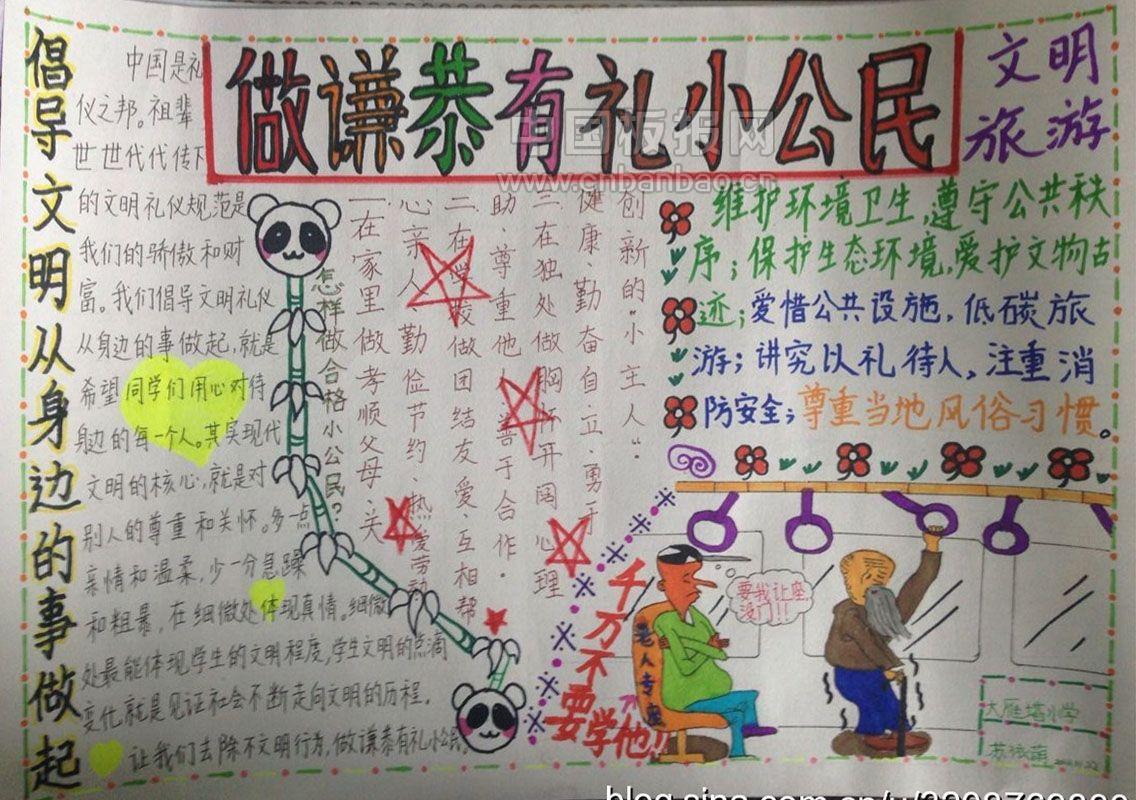 做谦恭有礼小公民
中国板报网
www.cnbanbao.cn
倡导文明从身边的事做起
中国是礼
仪之邦。祖辈
世世代代传下
的文明礼仪规范是
我们的骄傲和财
富。我们倡导文明礼仪
从身边的事做起,就是
希望同学们用心对待
身边的每一个人。其实现代
文明的核心,就是对
别人的尊重和关怀。多一点
亲情和温柔,少一分急躁
和粗暴,在细微处体现真情。细微
处最能体现学生的文明程度,学生文明的点滴
变化就是见证社会不断走向文明的历程。
让我们去除不文明行为,做谦恭有礼小公民。
怎样做合格小公民?
一.在家里做孝顺父母.关
心亲人.勤俭节约.热爱劳动
二.在学校做团结友爱.互相帮
助.尊重他人.善于合作.
三.在独处做胸怀开阔.心理
健康.勤奋自立.勇于
创新的“小主人”
文明
旅游
维护环境卫生,遵守公共秩
序;保护生态环境,爱护文物古
迹;爱惜公共设施,低碳旅
游;讲究以礼待人,注重消
防安全;尊重当地风俗习惯。
要我让座
没门!!!
老人专座
千万不要学他!!
大雁塔小学